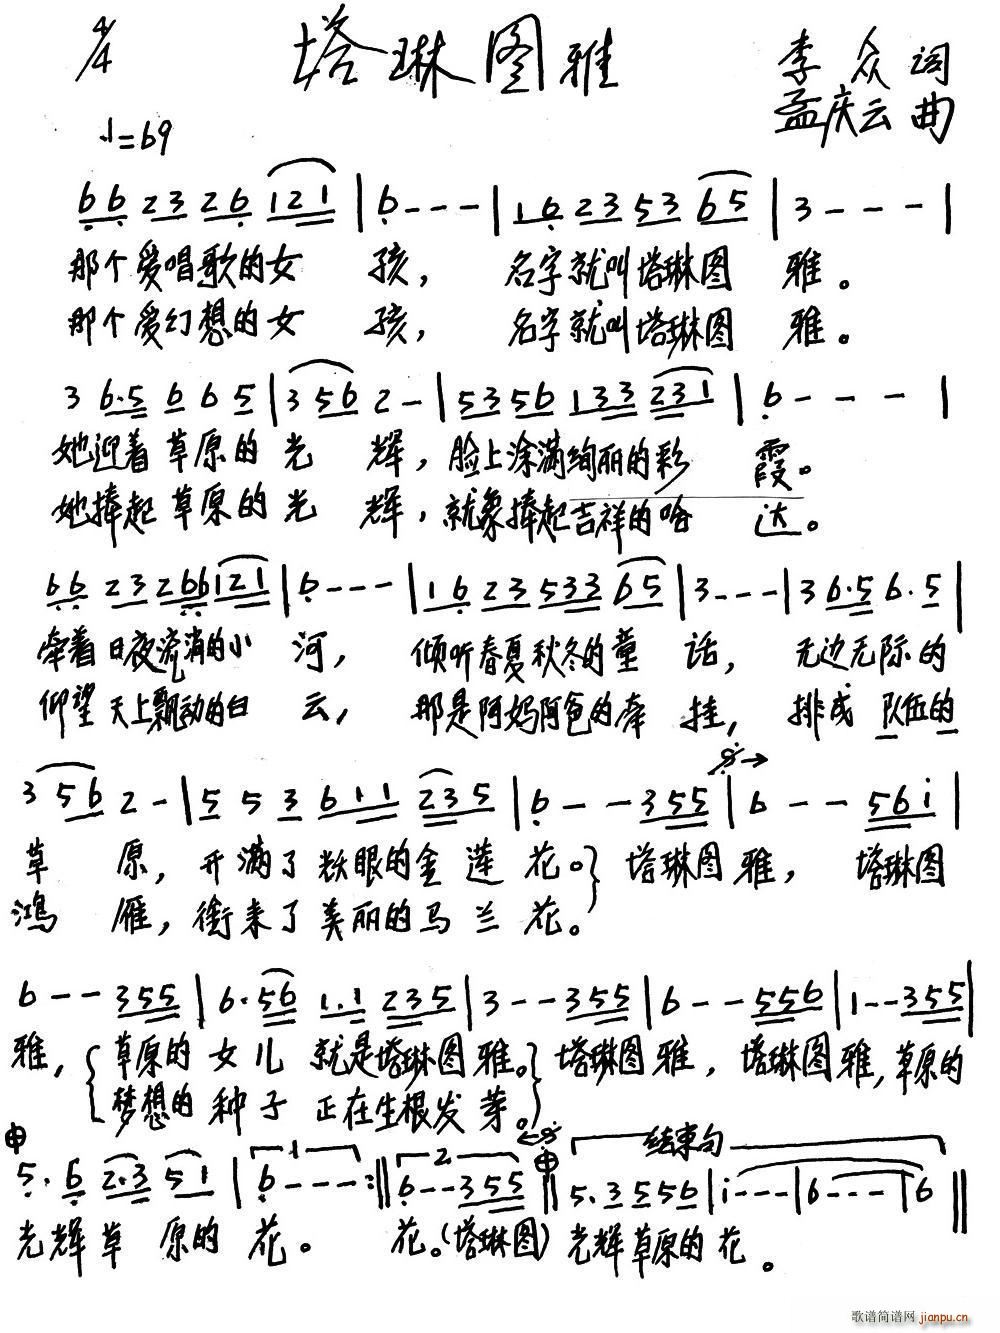 4/4 塔琳图雅 李众词
孟庆云曲
♩=69
6 6 2 3 2 6 1 2 1 | 6 - - - | 1 6 2 3 5 3 6 5 | 3 - - - |
那个爱唱歌的女 孩， 名字就叫塔琳图 雅。
那个爱幻想的女 孩， 名字就叫塔琳图 雅。
3 6·5 6 6 5 | 3 5 6 2 - | 5 3 5 6 1 3 3 2 3 1 | 6 - - - |
她迎着草原的光 辉，脸上涂满绚丽的彩 霞。
她捧起草原的光 辉，就象捧起吉祥的哈 达。
6 6 2 3 2 6 6 1 2 1 | 6 - - - | 1 6 2 3 5 3 3 6 5 | 3 - - - | 3 6·5 6·5 |
牵着日夜流淌的小 河， 倾听春夏秋冬的童 话， 无边无际的
仰望天上飘动的白 云， 那是阿妈阿爸的牵 挂， 排成队伍的
3 5 6 2 - | 5 5 3 6 1 1 2 3 5 | 6 - - 3 5 5 | 6 - - 5 6 i |
草 原，开满了耀眼的金莲花。} 塔琳图雅， 塔琳图
鸿 雁，衔来了美丽的马兰花。
6 - - 3 5 5 | 6·5 6 1·1 2 3 5 | 3 - - 3 5 5 | 6 - - 5 5 6 | 1 - - 3 5 5 |
雅，{草原的女儿 就是塔琳图雅。} 塔琳图雅，塔琳图雅，草原的
梦想的种子 正在生根发芽。
5·6 2·3 5 1 | 1 6 - - - :‖ 2 6 - - 3 5 5 ‖ 结束句 5·3 5 5 6 | i - - - | 6 - - - | 6 ‖
光辉草 原的 花。 花。(塔琳图) 光辉草原的花。
歌谱简谱网 jianpu.cn